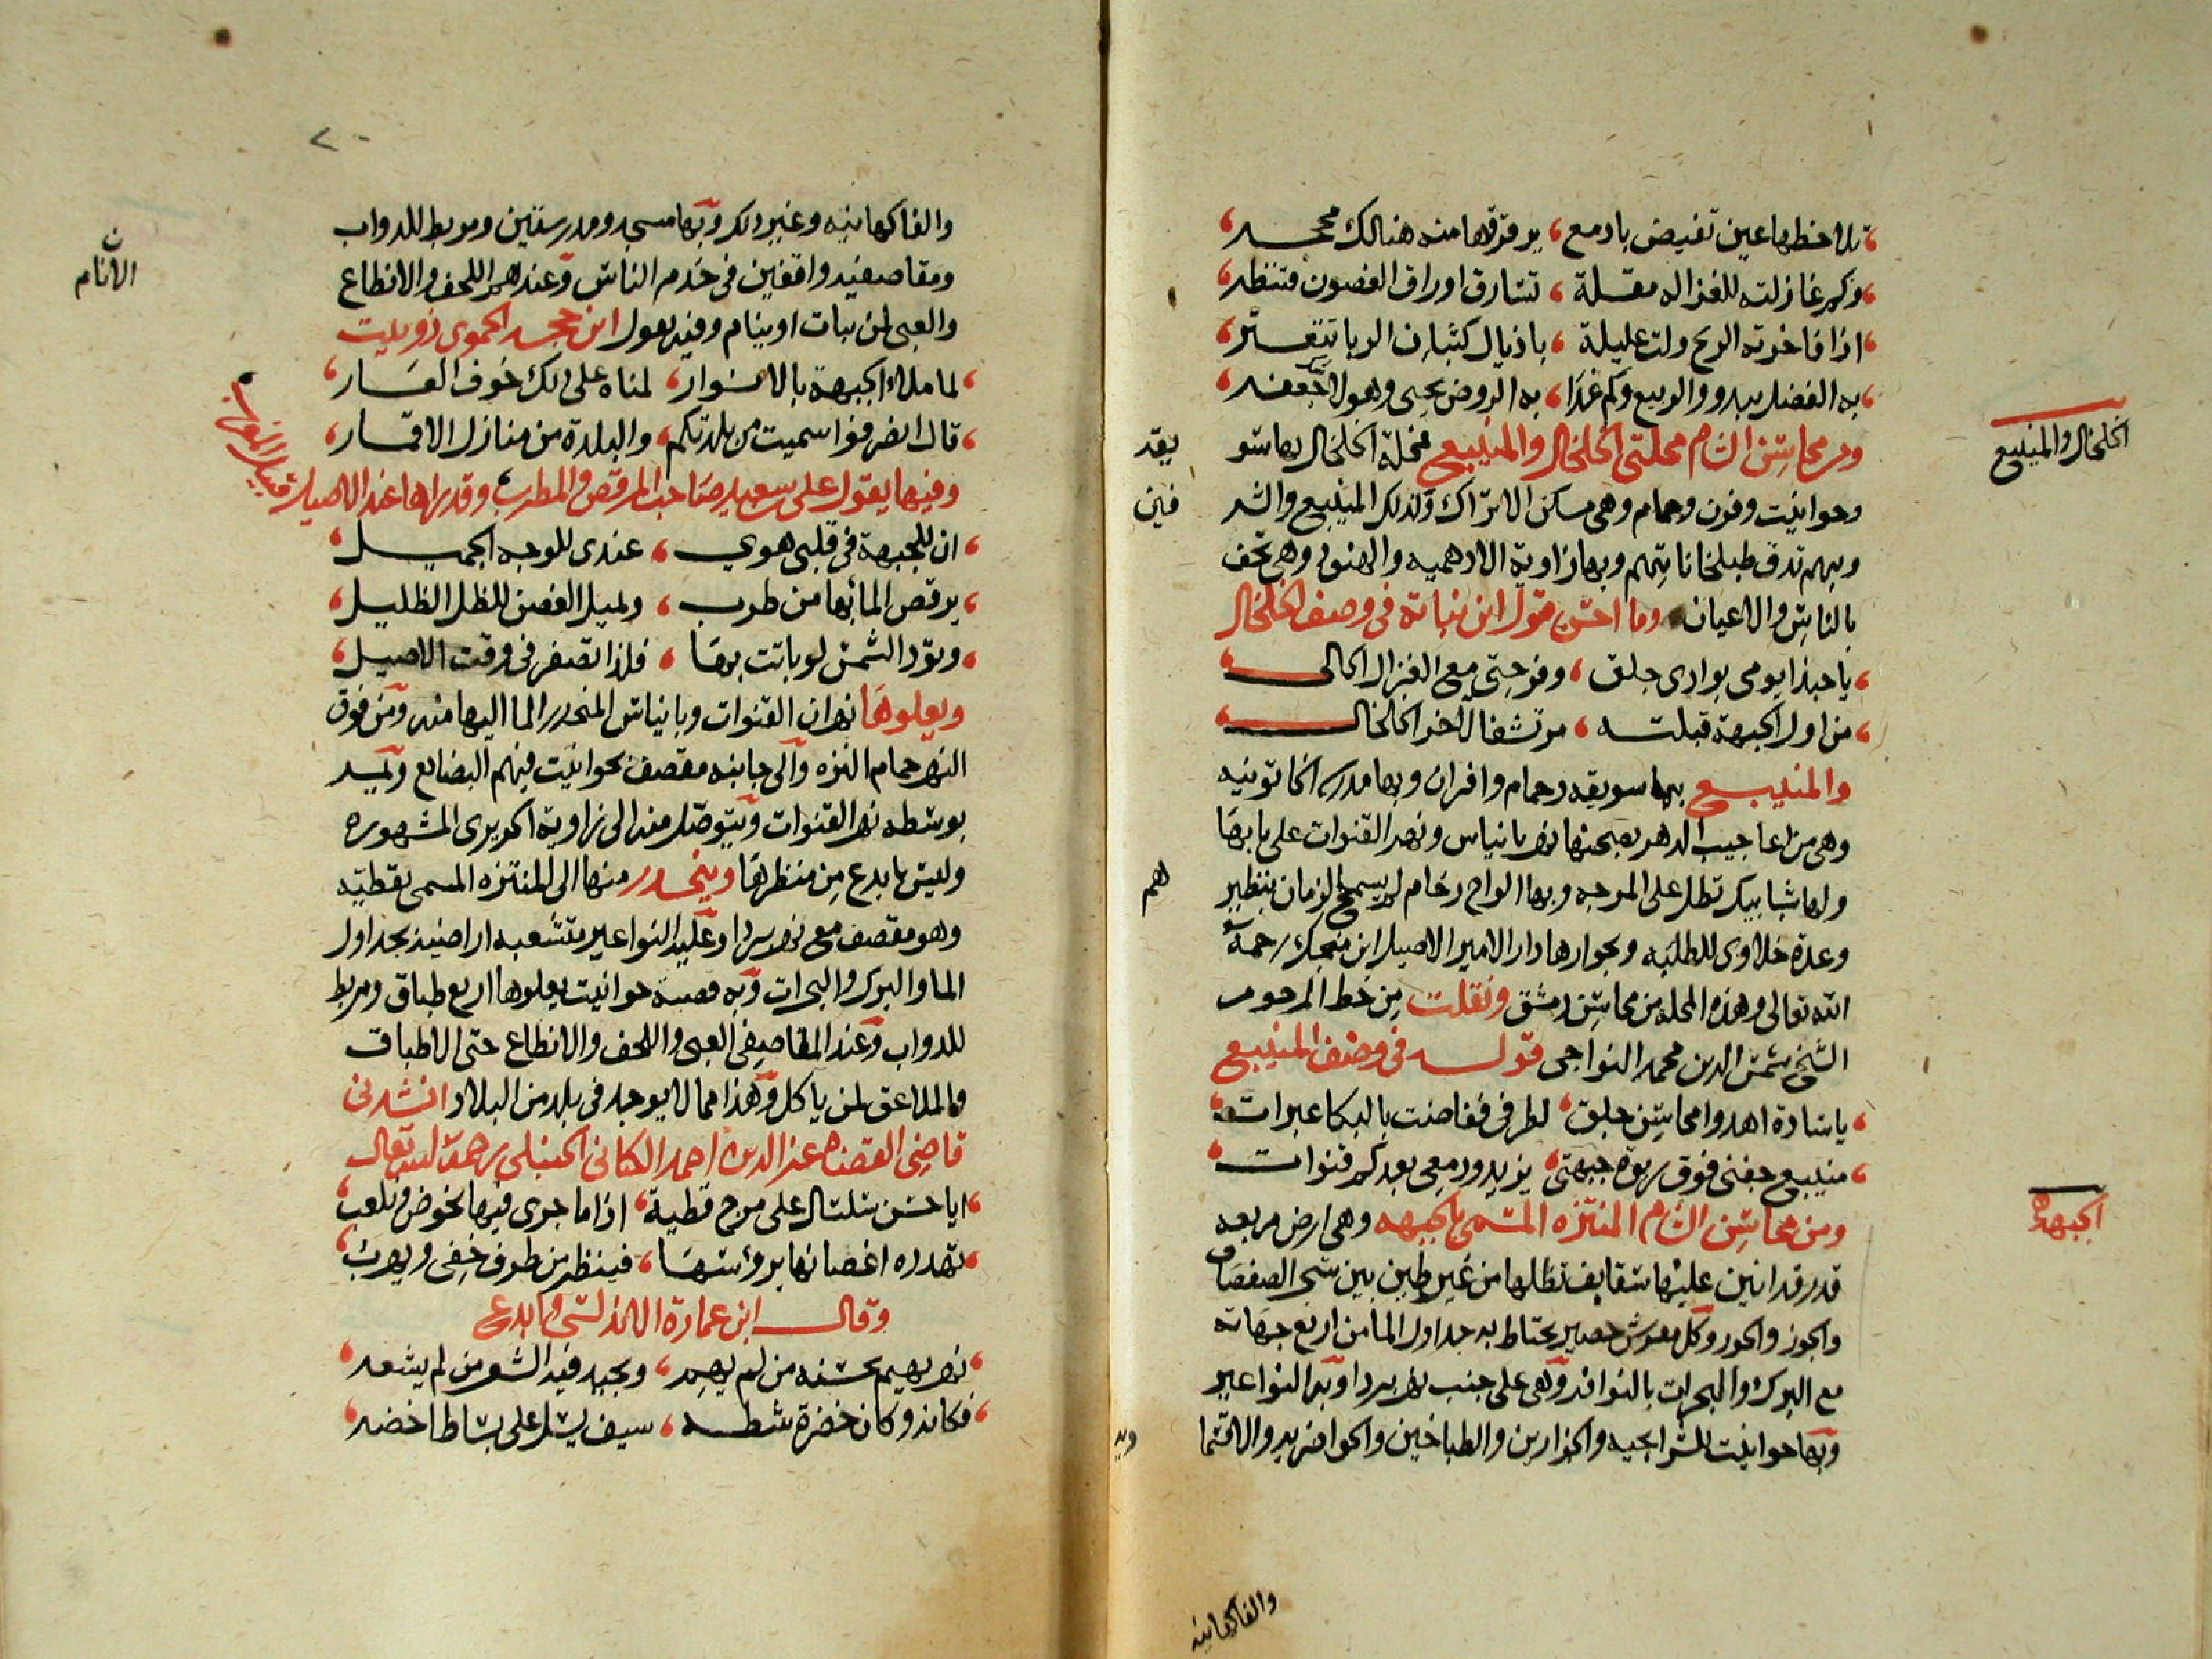 تلاحظها عين تفيض بادمع يرقرقها منه هنالك محجر
وكم غازلته للغزاله مقلة تسارق اوراق الغصون فتنظر
اذا فاخرته الريح ولت عليلة باذيال كثبان الربا تتعثر
به الفضل يبدو والربيع وكم غدا به الروض يحيى وهو لا شك جعفر
ومن محاسن الشام محلتى الخلخال والمنيبع فمحلة الخلخال بها سو يقه
الخلخال والمنيبع
وحوانيت وفرن وحمام وهى مسكن الاتراك وكذلك المنيبع والشر فين
وبهم تدق طبلخاناتهم وبها زاوية الادهميه والهنود وهى تحف
بالناس والاعيان وما احسن قول ابن نباته فى وصف الخلخال
يا حبذا يومى بوادى جلق وفرجتى مع الغزال الحالى
من اول الجبهة قبلته مرتشفا لاخر الخلخال
والمنيبع بها سويقه وحمام وافران وبها مدرسه الخاتونيه
وهى من اعاجيب الدهر بصحنها نهر بانياس ونهر القنوات على بابها
ولها شبابيك تطل على المرجه وبها الواح رخام لم يسمح الزمان بنظيرهم
وعدة خلاوى للطلبه وبجوارها دار الامير الاصيل ابن منجك رحمه
الله تعالى وهذه المحله من محاسن دمشق ونقلت من خط المرحوم
الشيخ شمس الدين محمد النواجى قوله فى وصف المنيبع
يا سادة اهدوا محاسن جلق لطرفى ففاضت بالبكا عبرات
منيبع جفنى فوق ربوة جبهتى يزيد ودمعى بعدكم قنوات
ومن محاسن الشام المنتزه المسمى بالجبهه وهى ارض مربعه
الجبهة
قدر فدانين عليها سقايف تظلها من غير طين بين شجر الصفصاف
والجوز والحور وكل مفرش حصير يحتاط به جداول الما من اربع جهاته
مع البرك والبحرات بالنوافر وهى على جنب نهر بردا وبه النواعير
وبها حوانيت للشرايحيه والجزارين والطباخين والحواضريه والاقسما ويه
والفاكهانيه
والفاكهانيه وغير ذلك وبها مسجد ومدرستين ومربط للدواب
ومقاصفيه واقفين فى خدم الناس وعندهم اللحف والانطاع
الانام
والعبى لمن يبات او ينام وفيه يقول ابن حجه الحموى ذو بيت
لما ملاء الجبهة بالانوار لمناه على ذلك خوف العار
قال انصرفوا سميت من بلدتكم والبلدة من منازل الاقمار
وفيها يقول على بن سعيد صاحب المرقص والمطرب وقد راها عند الاصيل
ان للجبهة فى قلبى هوى عندى للوجه الجميل
يرقص الما بها من طرب ويميل الغصن للظل الظليل
وتود الشمس لو باتت بها فلذا تصفر فى وقت الاصيل
ويعلوها نهران القنوات وبانياس المنحدر الما اليها منه ومن فوق
النهر حمام النزه والى جانبه مقصف بحوانيت فيهم البضايع ويمر
بوسطه نهر القنوات ويتوصل منه الى زاوية الحريرى المشهوره
وليس بابدع من منظرها وينحدر منها الى المنتزه المسمى بقطيه
وهو مقصف مع نهر بردا وعليه النواعير متشعبه اراضيه بجداول
الما والبرك والبحرات وبه قصبة حوانيت يعلوها اربع طباق ومربط
للدواب وعند المقاصفى العبى واللحف والانطاع حتى الاطباق
والملاعق لمن ياكل وهذا مما لا يوجد فى بلد من البلاد انشدنى
قاضى القضاه عز الدين احمد الكنانى الحنبلى رحمه الله تعالى
ايا حسن سلسال على مرج قطية اذا ما جرى فيها نخوض ونلعب
تهدده اغصانها برؤسها فينظر من طرف خفى ويهرب
وقال ابن عمارة الاندلسى وابدع
نهر يهيم بحسنه من لم يهم ويجيد فيه الشعر من لم يشعر
فكانه وكان خضرة شطه سيف يسل على بساط اخضر